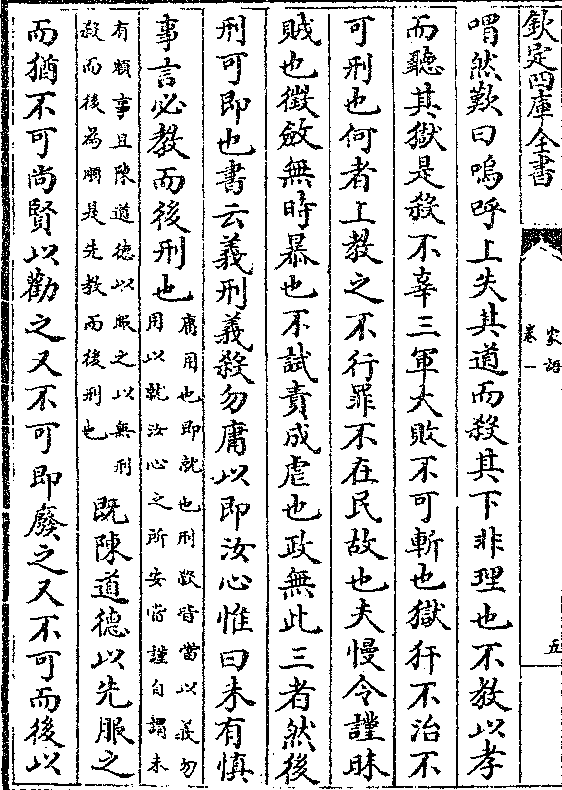 欽定四庫全書
家語
卷一
五
喟然歎曰嗚呼上失其道而殺其下非理也不教以孝
而聽其獄是殺不辜三軍大敗不可斬也獄犴不治不
可刑也何者上教之不行罪不在民故也夫慢令謹昧
賊也徵斂無時暴也不試責成虐也政無此三者然後
刑可即也書云義刑義殺勿庸以即汝心惟曰未有慎
事言必教而後刑也
庸用也即就也刑殺皆當以義勿
用以就汝心之所安當謹自謂未
有順事且陳道德以服之以無刑
殺而後為順是先教而後刑也
既陳道德以先服之
而猶不可尚賢以勸之又不可即廢之又不可而後以